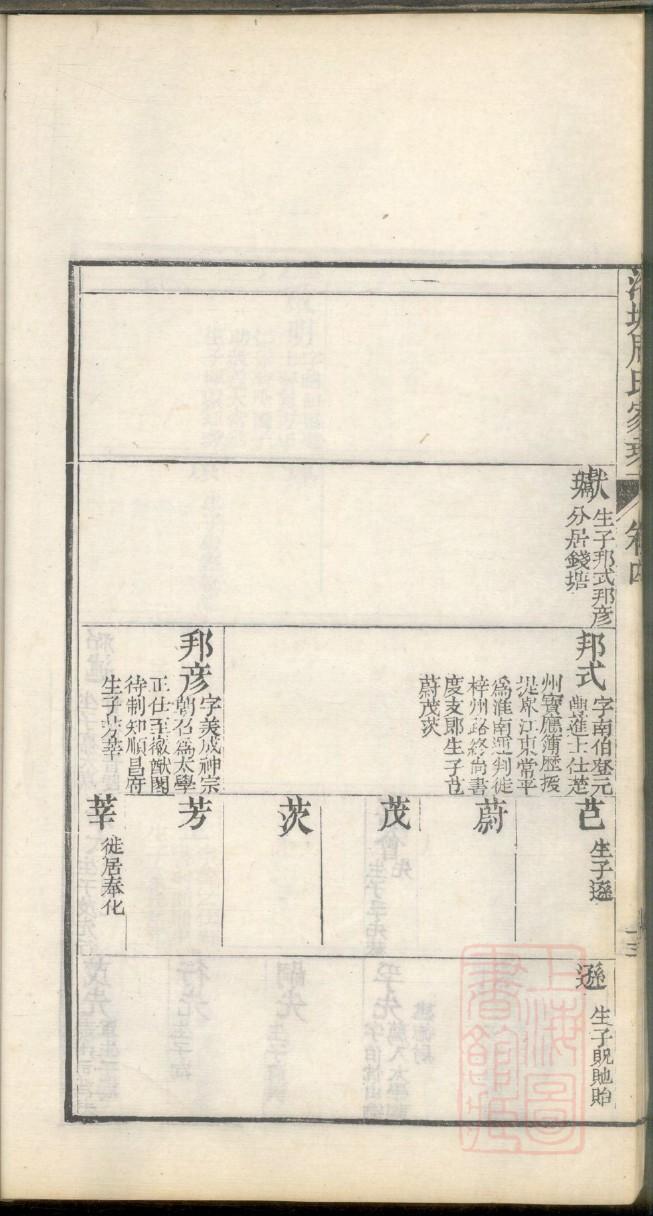 周氏家乘
卷四
獻
生子邦式邦彥
分居錢塘
邦式
字南伯登元
豐進士仕楚
州寶應簿歷
江東常平
爲淮南運判徙
梓州路終尚書
度支郎生子芑
蔚茂茨
邦彥
字美成神宗
朝召爲太學
正仕至徽猷閣
待制知順昌府
生子芳莘
芑
生子遜
蔚
茂
茨
芳
莘
徙居奉化
遜
生子貺貤貽
上海圖
書館藏